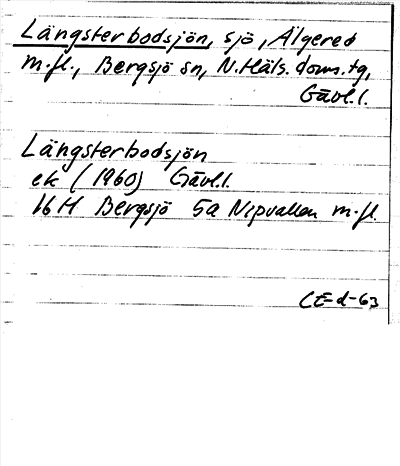 Längsterbodsjön, sjö, Älgered
m.fl., Bergsjö sn, N.Häls. doms.tg,
Gävl.l.
Längsterbodsjön
ek (1960) Gävl.l.
16H Bergsjö 5a Nipvallen m.fl.
CE-d-63